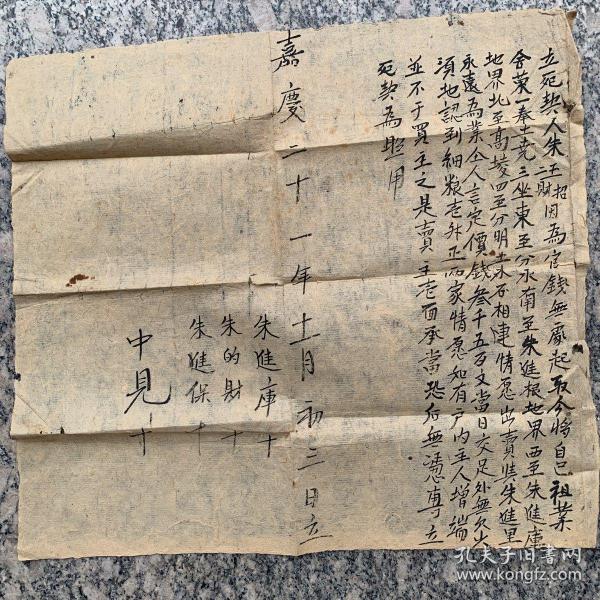 立死契人朱王招因為官錢無處起取今將自己祖業
二財
舍菓一奉土堯三坐東至分水南至朱進根地界西至朱進庫
地界北至高埈四至分明土木石相連情愿出賣與朱進里
永遠為業仝人言定價錢叁千五百文當日交足外無欠少
須地認到細粮壱升正兩家情愿如有戶內主人增端
並不于買主之是賣主壱面承當恐后無憑專立
死契為照用
嘉慶二十一年十二月初三日立
朱進庫十
朱的財十
朱進保十
中見十
孔夫子旧書网
www.kongfz.com